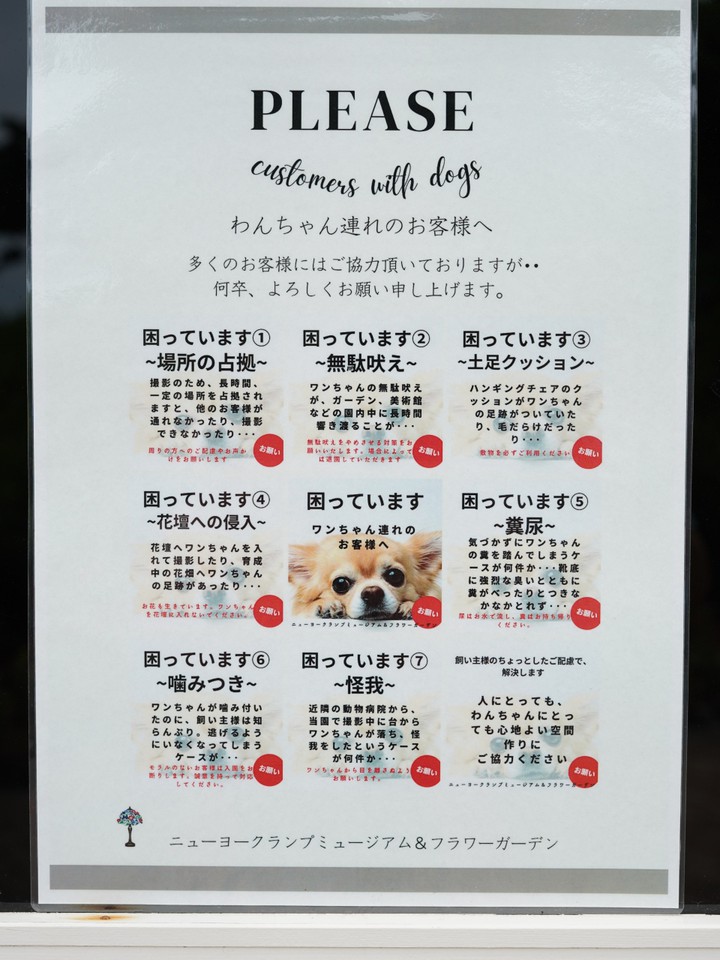 PLEASE
customers with dogs
わんちゃん連れのお客様へ
多くのお客様にはご協力頂いておりますが••
何卒、よろしくお願い申し上げます。
困っています①
~場所の占拠~
撮影のため、長時間、
一定の場所を占拠され
ますと、他のお客様が
通れなかったり、撮影
できなかったり・・・
周りの方へのご配慮やお声か
けをお願いします
お願い
困っています②
~無駄吠え~
ワンちゃんの無駄吠え
が、ガーデン、美術館
などの園内中に長時間
響き渡ることが・・・
無駄吠えをやめさせる対策をお
願いいたします。場合によって
は退園していただきます
お願い
困っています③
~土足クッション~
ハンギングチェアのク
ッションがワンちゃん
の足跡がついていた
り、毛だらけだった
り・・・
敷物を必ずご利用ください
お願い
困っています④
~花壇への侵入~
花壇へワンちゃんを入
れて撮影したり、育成
中の花畑へワンちゃん
の足跡があったり・・・
お花も生きています。ワンちゃん
を花壇に入れないでください。
お願い
困っています
ワンちゃん連れの
お客様へ
お願い
ニューヨークランプミュージアム&フラワーガーデン
困っています⑤
~糞尿~
気づかずにワンちゃん
の糞を踏んでしまうケ
ースが何件か・・・靴底
に強烈な臭いとともに
糞がべったりとつきな
かなかとれず・・・
尿はお水で流し、糞はお持ち帰り
ください。
お願い
困っています⑥
~噛みつき~
ワンちゃんが噛み付い
たのに、飼い主様は知
らんぷり。逃げるよう
にいなくなってしまう
ケースが・・・
モラルのないお客様は入園をお
断りします。誠意を持って対応
してください。
お願い
困っています⑦
~怪我~
近隣の動物病院から、
当園で撮影中に台から
ワンちゃんが落ち、怪
我をしたというケース
が何件か・・・
ワンちゃんから目を離さぬよう
お願いします。
お願い
飼い主様のちょっとしたご配慮で、
解決します
人にとっても、
わんちゃんにとっ
ても心地よい空間
作りに
ご協力ください
お願い
ニューヨークランプミュージアム&フラワーガーデン
ニューヨークランプミュージアム&フラワーガーデン